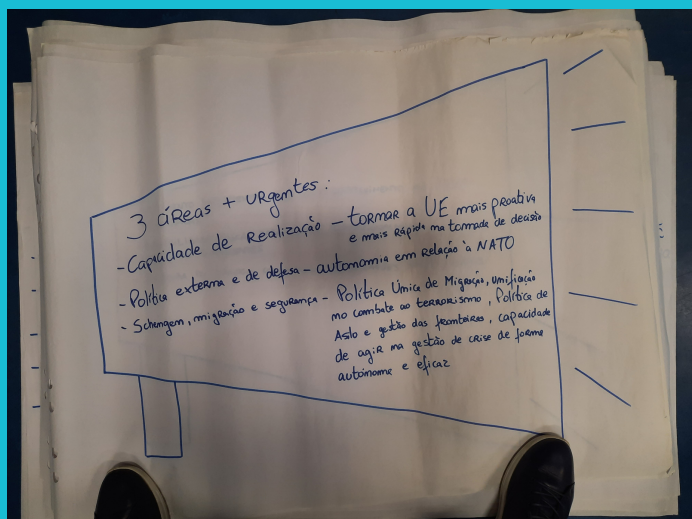 3 áreas + urgentes:
- Capacidade de Realização - tornar a UE mais proativa
e mais rápida na tomada de decisão
- Política externa e de defesa - autonomia em relação à NATO
- Schengen, migração e segurança - Política Única de Migração, unificação
no combate ao terrorismo, Política de
Asilo e gestão das fronteiras, capacidade
de agir na gestão de crise de forma
autónoma e eficaz